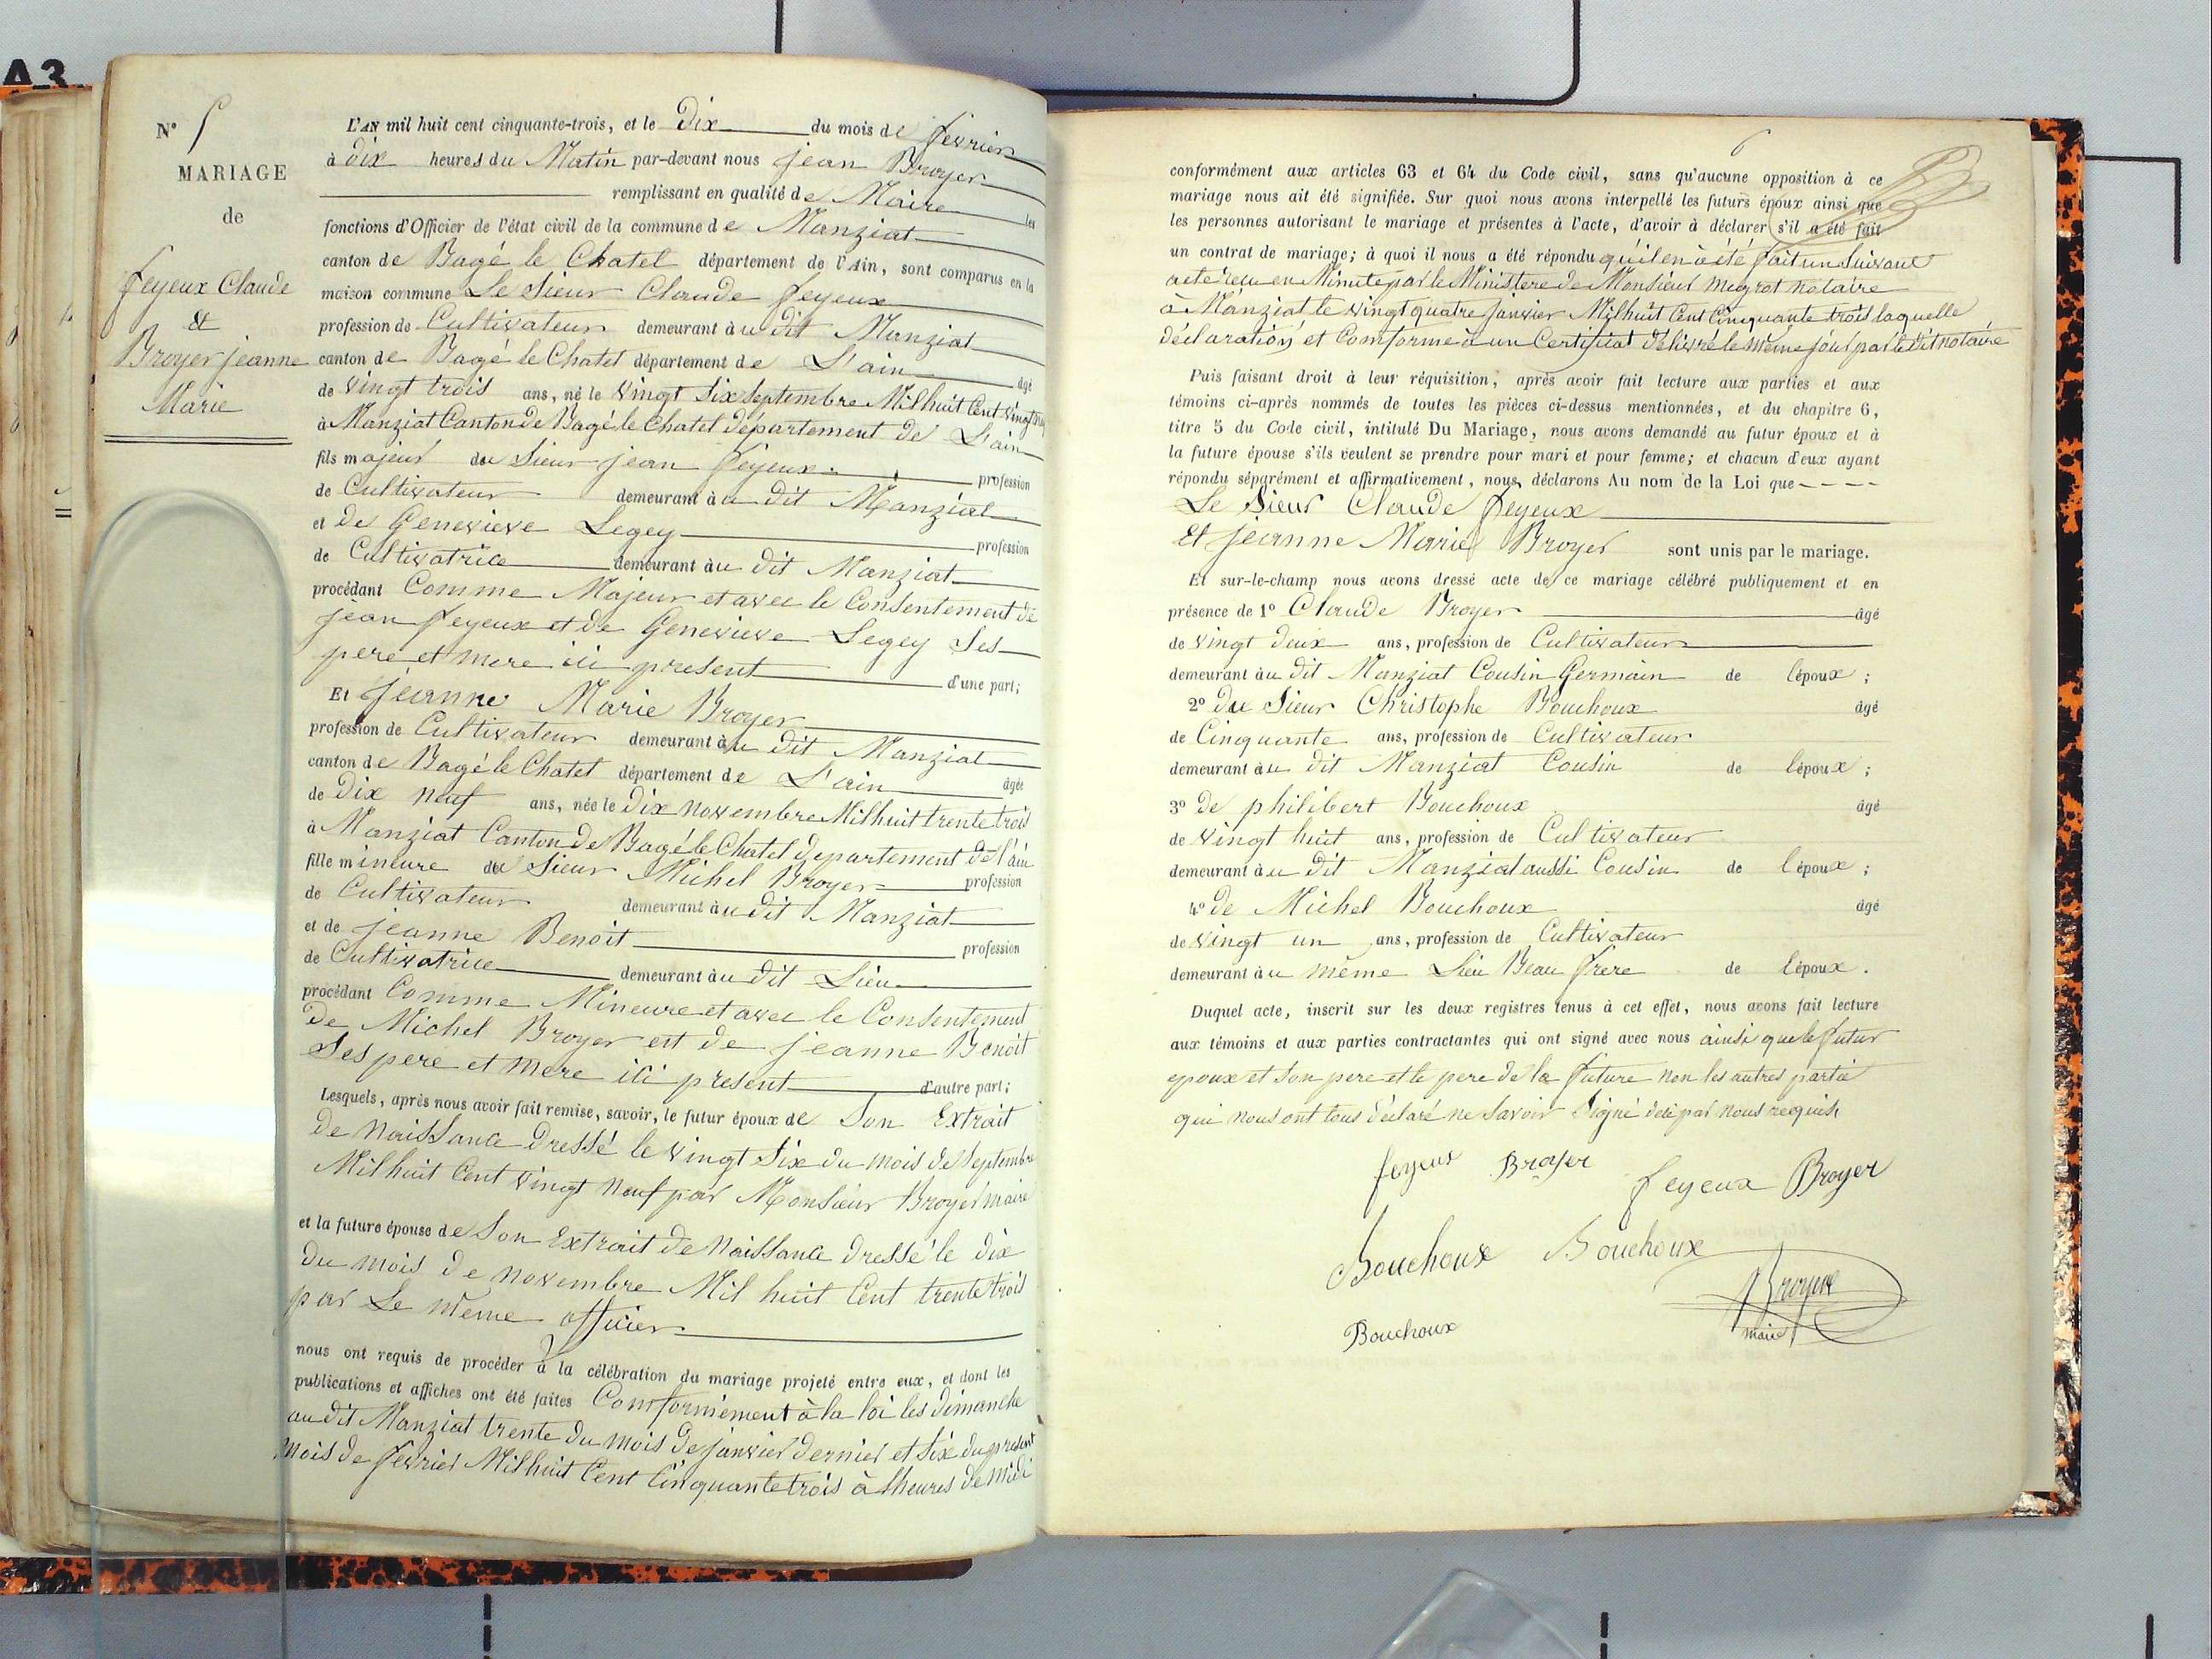 A3
N° 5
MARIAGE
de
feyeux Claude
&
Broyer jeanne
Marie
L'AN mil huit cent cinquante-trois, et le Dix du mois de fevrier
à dix heures du Matin par-devant nous jean Broyer
remplissant en qualité de Maire les
fonctions d'Officier de l'état civil de la commune de Manziat
canton de Bagé le Chatel département de l'Ain, sont comparus en la
maison commune Le Sieur Claude feyeux
profession de Cultivateur demeurant àu dit Manziat
canton de Bagé le Chatel département de L'ain âgé
de vingt trois ans, né le vingt Six Septembre Mil huit Cent vingt
à Manziat Canton de Bagé le Chatel département de L'ain
fils majeur du Sieur jean feyeux profession
de Cultivateur demeurant àu dit Manziat
et de Genevieve Legey profession
de Cultivatrice demeurant àu dit Manziat
procédant Comme Majeur et avec le Consentement de
jean feyeux et de Genevieve Legey Ses
pere et mere ici present d'une part;
Et jeanne Marie Broyer
profession de Cultivateur demeurant àu dit Manziat
canton de Bagé le Chatel département de L'ain âgée
de Dix neuf ans, née le Dix novembre Mil huit trente trois
à Manziat Canton de Bagé le Chatel departement de l'ain
fille mineure du Sieur Michel Broyer profession
de Cultivateur demeurant àu dit Manziat
et de jeanne Benoit profession
de Cultivatrice demeurant àu dit Lieu
procédant Comme Mineure et avec le Consentement
de Michel Broyer et de jeanne Benoit
Ses pere et mere ici present d'autre part;
Lesquels, après nous avoir fait remise, savoir, le futur époux de Son Extrait
de naissance dressé le vingt Six du mois de Septembre
Mil huit Cent vingt neuf par Monsieur Broyer maire
et la future épouse de Son Extrait de Naissance dressé le dix
du mois de novembre Mil huit Cent trente trois
par Le même officier
nous ont requis de procéder à la célébration du mariage projeté entre eux, et dont les
publications et affiches ont été faites Conformément à la loi les dimanche
au dit Manziat trente du mois de janvier dernier et Six du present
mois de fevrier Mil huit Cent Cinquante trois à lheures de midi
6
conformément aux articles 63 et 64 du Code civil, sans qu'aucune opposition à ce
mariage nous ait été signifiée. Sur quoi nous avons interpellé les futurs époux ainsi que
les personnes autorisant le mariage et présentes à l'acte, d'avoir à déclarer s'il a été fait
un contrat de mariage; à quoi il nous a été répondu qu'il en à été fait un Suivant
acte recu en Minute par le Ministere de Monsieur notaire
à Manziat le vingt quatre janvier Mil huit Cent Cinquante trois laquelle
déclaration et Comforme à un Certificat délivré le même jour par le dit notaire
Puis faisant droit à leur réquisition, après avoir fait lecture aux parties et aux
témoins ci-après nommés de toutes les pièces ci-dessus mentionnées, et du chapitre 6,
titre 5 du Code civil, intitulé Du Mariage, nous avons demandé au futur époux et à
la future épouse s'ils veulent se prendre pour mari et pour femme; et chacun d'eux ayant
répondu séparément et affirmativement, nous déclarons Au nom de la Loi que
Le Sieur Claude feyeux
Et jeanne Marie Broyer sont unis par le mariage.
Et sur-le-champ nous avons dressé acte de ce mariage célébré publiquement et en
présence de 1° Claude Broyer âgé
de vingt deux ans, profession de Cultivateur
demeurant àu dit Manziat Cousin Germain de lépoux;
2° Du Sieur Christophe Bouchoux âgé
de Cinquante ans, profession de Cultivateur
demeurant àu dit Manziat Cousin de lépoux;
3° de philibert Bouchoux âgé
de vingt huit ans, profession de Cultivateur
demeurant àu dit Manziat aussi Cousin de lépoux;
4° de Michel Bouchoux âgé
de vingt un ans, profession de Cultivateur
demeurant àu même Lieu Beau frere de lépoux.
Duquel acte, inscrit sur les deux registres tenus à cet effet, nous avons fait lecture
aux témoins et aux parties contractantes qui ont signé avec nous ainsi que le futur
epoux et Son pere et le pere de la future non les autres partie
qui nous ont tous déclaré ne savoir signé par nous requis
feyeux Broyer feyeux Broyer
Bouchoux Bouchoux
Broyer
maire
Bouchoux